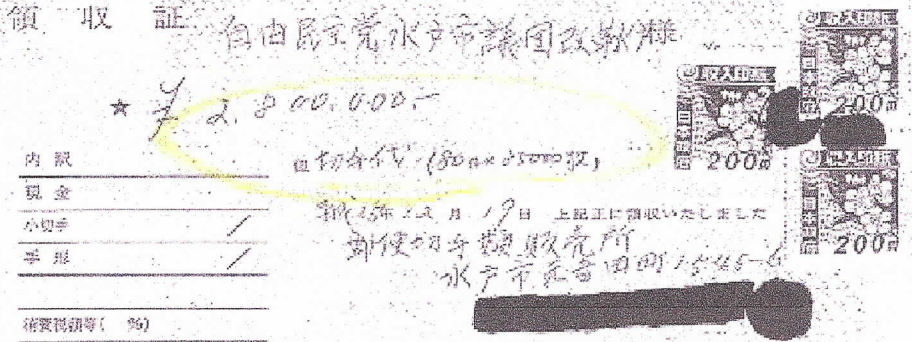 領 収 証
自由民主党水戸市議団改歓様
★ ¥ 2,800,000.-
但切手代 (80円× 35000枚)
内 訳
現 金
小切手 /
手 形 /
消費税額等( %)
12月19日 上記正に領収いたしました
郵便切手類販売所
水戸市元吉田町1545-6
収入印紙
日本政府
200円
収入印紙
日本政府
200円
収入印紙
日本政府
200円